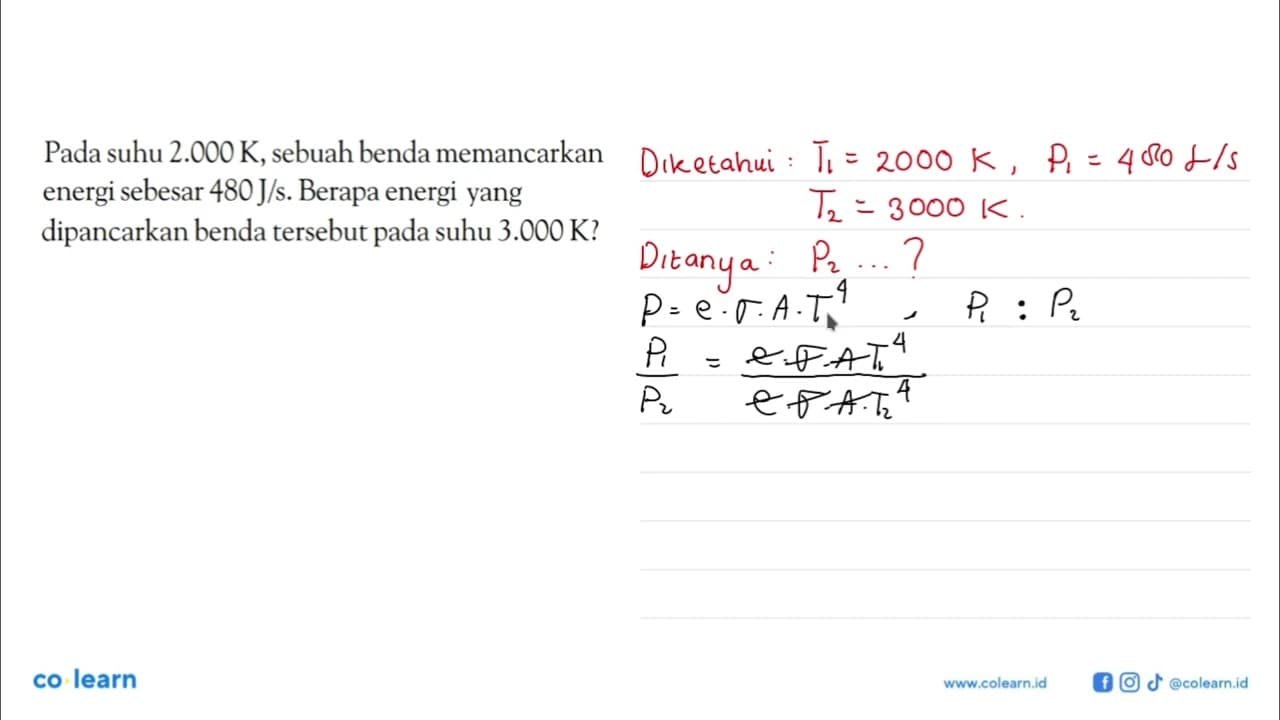 Pada suhu 2.000 K, sebuah benda memancarkan
energi sebesar 480 J/s. Berapa energi yang
dipancarkan benda tersebut pada suhu 3.000 K?
Diketahui : T₁ = 2000 K , P₁ = 480 J/s
T₂ = 3000 K .
Ditanya : P₂ ... ?
P = e . σ . A . T⁴ , P₁ : P₂
P₁ / P₂ = e . σ . A T₁⁴ / e σ A . T₂⁴
co learn
www.colearn.id
@colearn.id